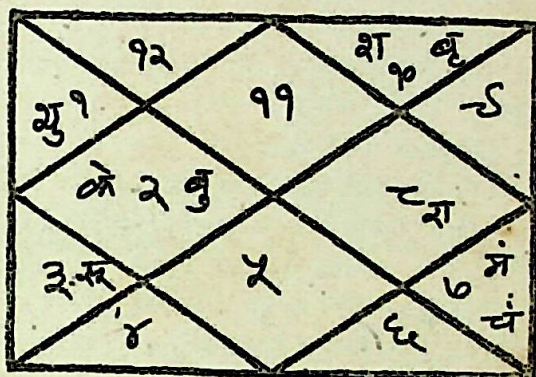 १२
श १० बृ
शु १
११
९
के २ बु
८ रा
३ सू
५
७ मं
चं
४
६